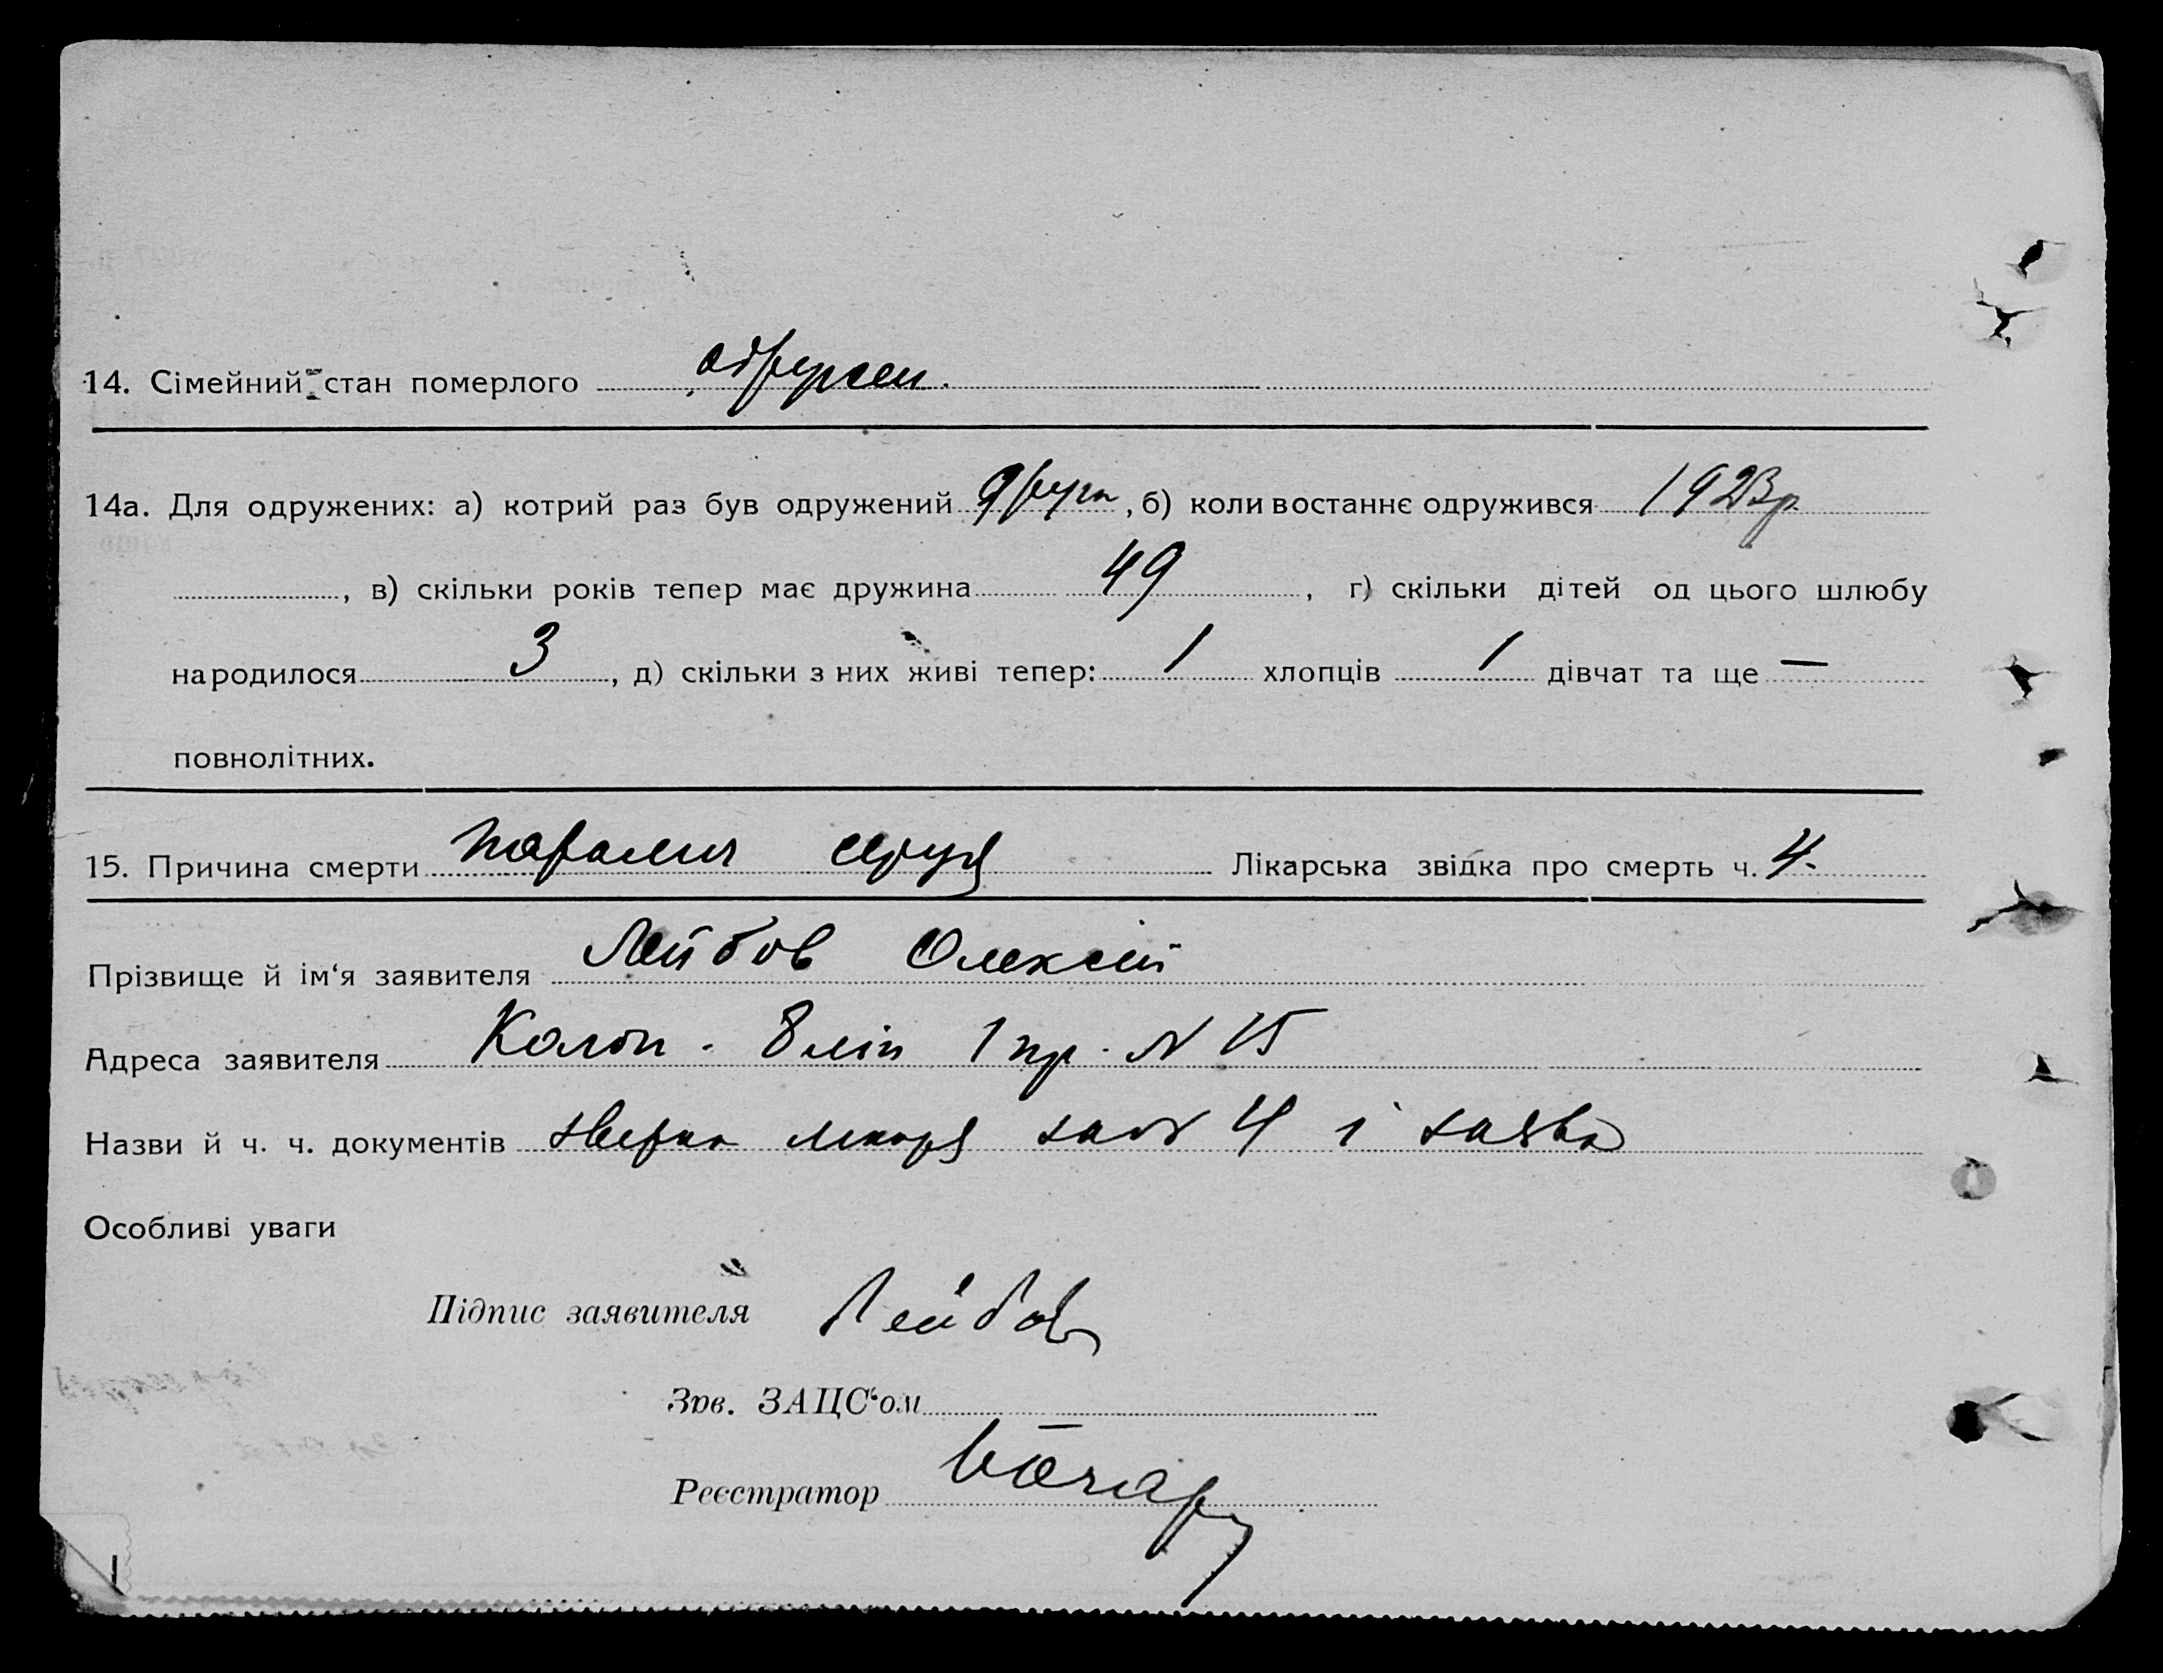 14. Сімейний стан померлого одружен.
14а. Для одружених: а) котрий раз був одружений други, б) коли востаннє одружився 1923 р.
, в) скільки років тепер має дружина 49, г) скільки дітей од цього шлюбу
народилося 3, д) скільки з них живі тепер: 1 хлопців 1 дівчат та ще —
повнолітних.
15. Причина смерти параліч серця Лікарська звідка про смерть ч. 4.
Прізвище й ім‘я заявителя Лейбов Олексій
Адреса заявителя Колон. 8 лін 1 пр. N 15
Назви й ч. ч. документів лікаря 4 і заява
Особливі уваги
Підпис заявителя Лейбов
Зав. ЗАЦС‘ом
Реєстратор